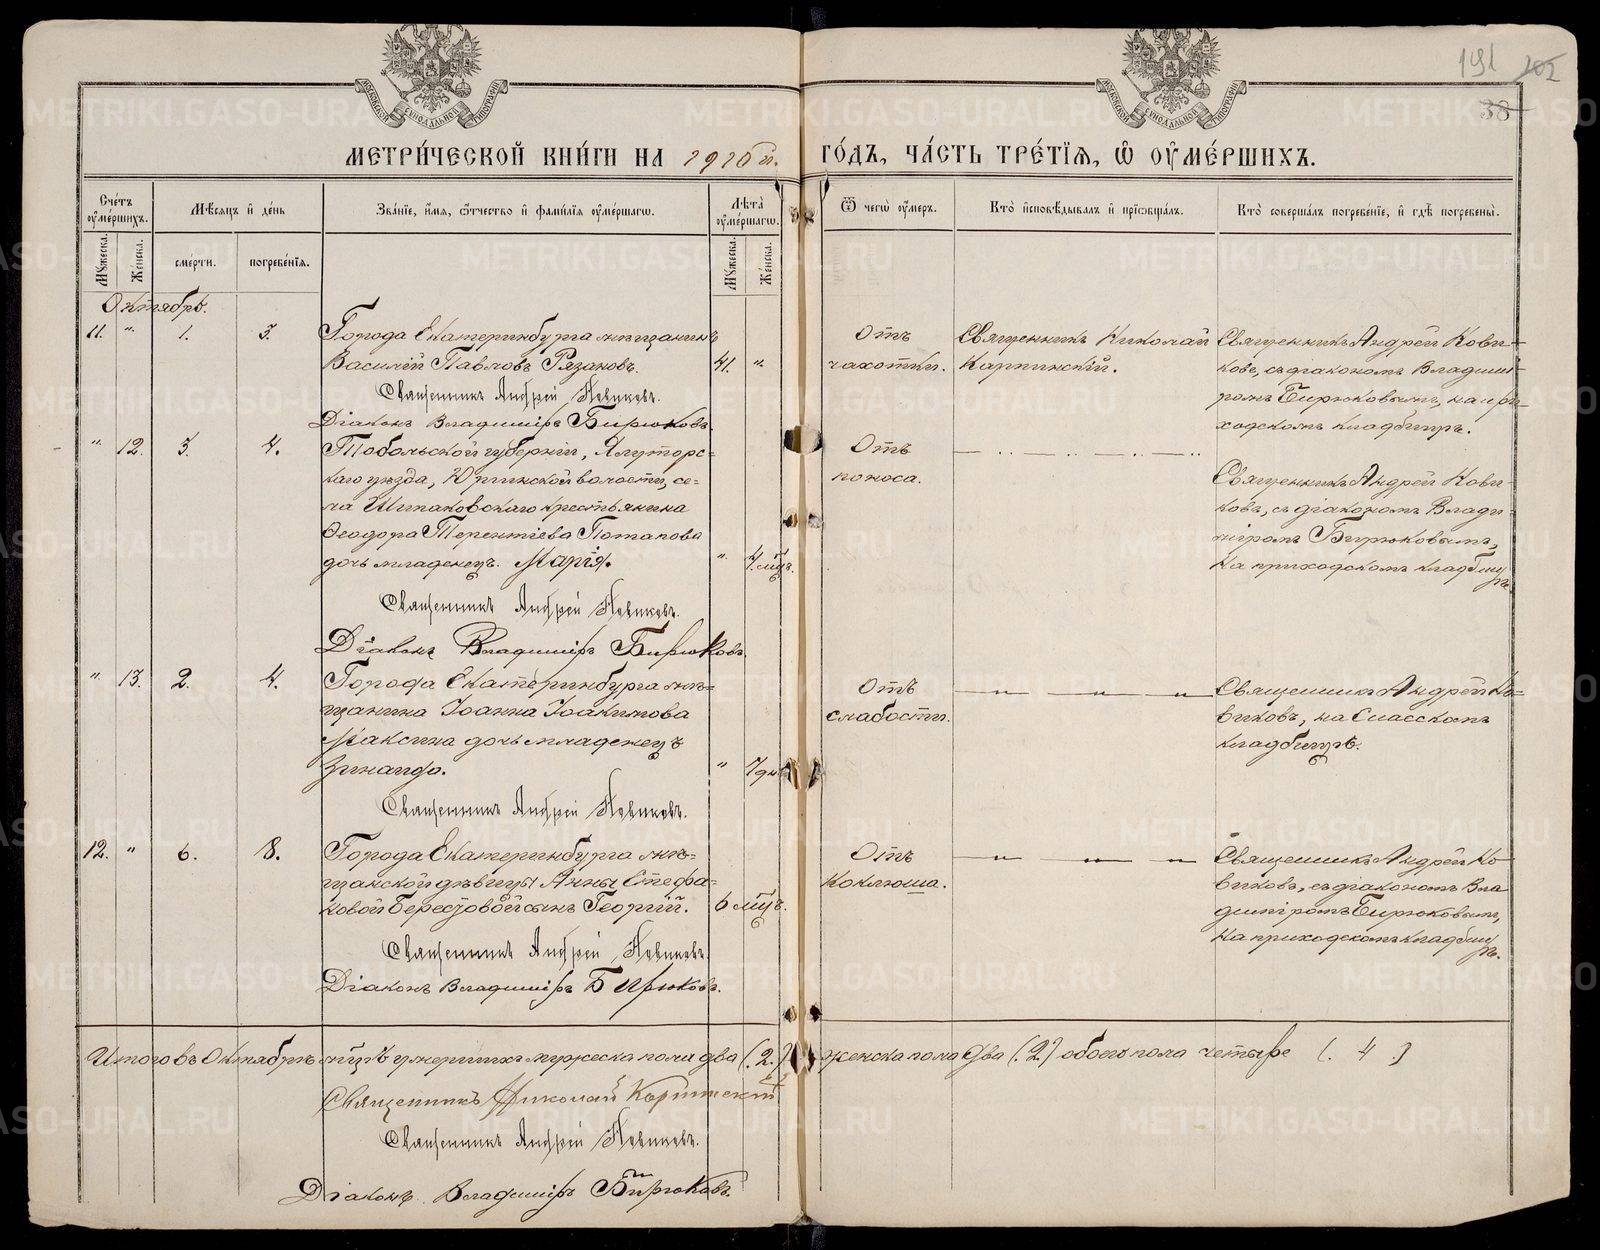 191 202
38
МОСКОВСКОЙ СѴНОДАЛЬНОЙ ТИПОГРАФІИ
МОСКОВСКОЙ СѴНОДАЛЬНОЙ ТИПОГРАФІИ
МЕТРИ́ЧЕСКОЙ КНИ́ГИ НА 1910 й. ГО́ДЪ, ЧА́СТЬ ТРЕ́ТЇѦ, Ѽ ОУ҆МЕ́РШИХЪ.
Сче́тъ оу҆ме́ршихъ.
Мѣ́сѧцъ и҆ де́нь
Зва́нїе, и҆́мѧ, ѻ҆́тчество и҆ фами́лїѧ оу҆ме́ршагѡ.
Лѣ́та оу҆ме́ршагѡ.
Ѿ чегѡ̀ оу҆́меръ.
Кто̀ и҆сповѣ́дывалъ и҆ прїѡбща́лъ.
Кто̀ соверша́лъ погребе́нїе, и҆ гдѣ̀ погребены̀.
Мꙋ́жеска.
Же́нска.
сме́рти.
погребе́нїѧ.
Мꙋ́жеска.
Же́нска.
Октябрь.
11. " 1. 3. Города Екатеринбурга мѣщанинъ
Василій Павловъ Рязановъ. 41. "
Священникъ Андрей Новиковъ.
Діаконъ Владиміръ Бирюковъ.
Отъ
чахотки.
Священникъ Николай
Карпинскій.
Священникъ Андрей Нови-
ковъ, съ діакономъ Владимі-
ромъ Бирюковымъ, на при-
ходскомъ кладбищѣ.
" 12. 3. 4. Тобольской губерніи, Ялуторс-
каго уѣзда, Юргинской волости, се-
ла Шипаковскаго крестьянина
Ѳеодора Терентіева Потапова
дочь младенецъ Марія. " 4. мѣс.
Священникъ Андрей Новиковъ.
Діаконъ Владиміръ Бирюковъ.
Отъ
поноса.
Священникъ Андрей Нови-
ковъ, съ діакономъ Влади-
міромъ Бирюковымъ,
на приходскомъ кладбищѣ.
" 13. 2. 4. Города Екатеринбурга мѣ-
щанина Іоанна Іоакимова
Максина дочь младенецъ
Зинаида. " 7 дн.
Священникъ Андрей Новиковъ.
Отъ
слабости.
Священникъ Андрей Но-
виковъ, на Спасскомъ
кладбищѣ.
12. " 6. 8. Города Екатеринбурга мѣ-
щанской дѣвицы Анны Стефа-
новой сынъ Георгій. 6 мѣс.
Священникъ Андрей Новиковъ.
Діаконъ Владиміръ Бирюковъ.
Отъ
коклюша.
Священникъ Андрей Но-
виковъ, съ діакономъ Вла-
диміромъ Бирюковымъ,
на приходскомъ кладбищѣ.
Итого въ Октябрѣ мѣсяцѣ умершихъ мужеска пола два (.2.) женска пола два (.2.) обоего пола четыре (. 4 .)
Священникъ Николай Карпинскій
Священникъ Андрей Новиковъ.
Діаконъ Владиміръ Бирюковъ.
METRIKI.GASO-URAL.RU